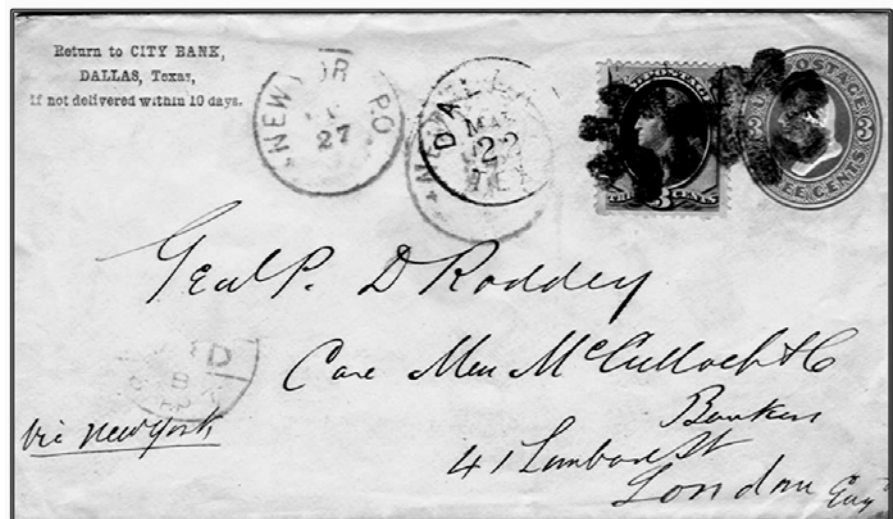 Return to CITY BANK,
DALLAS, Texas,
if not delivered within 10 days.
NEW YOR P.O.
27
DALL
MAR
22
TEX
NEW
U.S. POSTAGE
3 3
THREE CENTS
POSTAGE
THREE 3 CENTS
Genl P. D Roddey
Care Mess McCulloch & Co
Bankers
41 Lombard St
London Eng
via New York